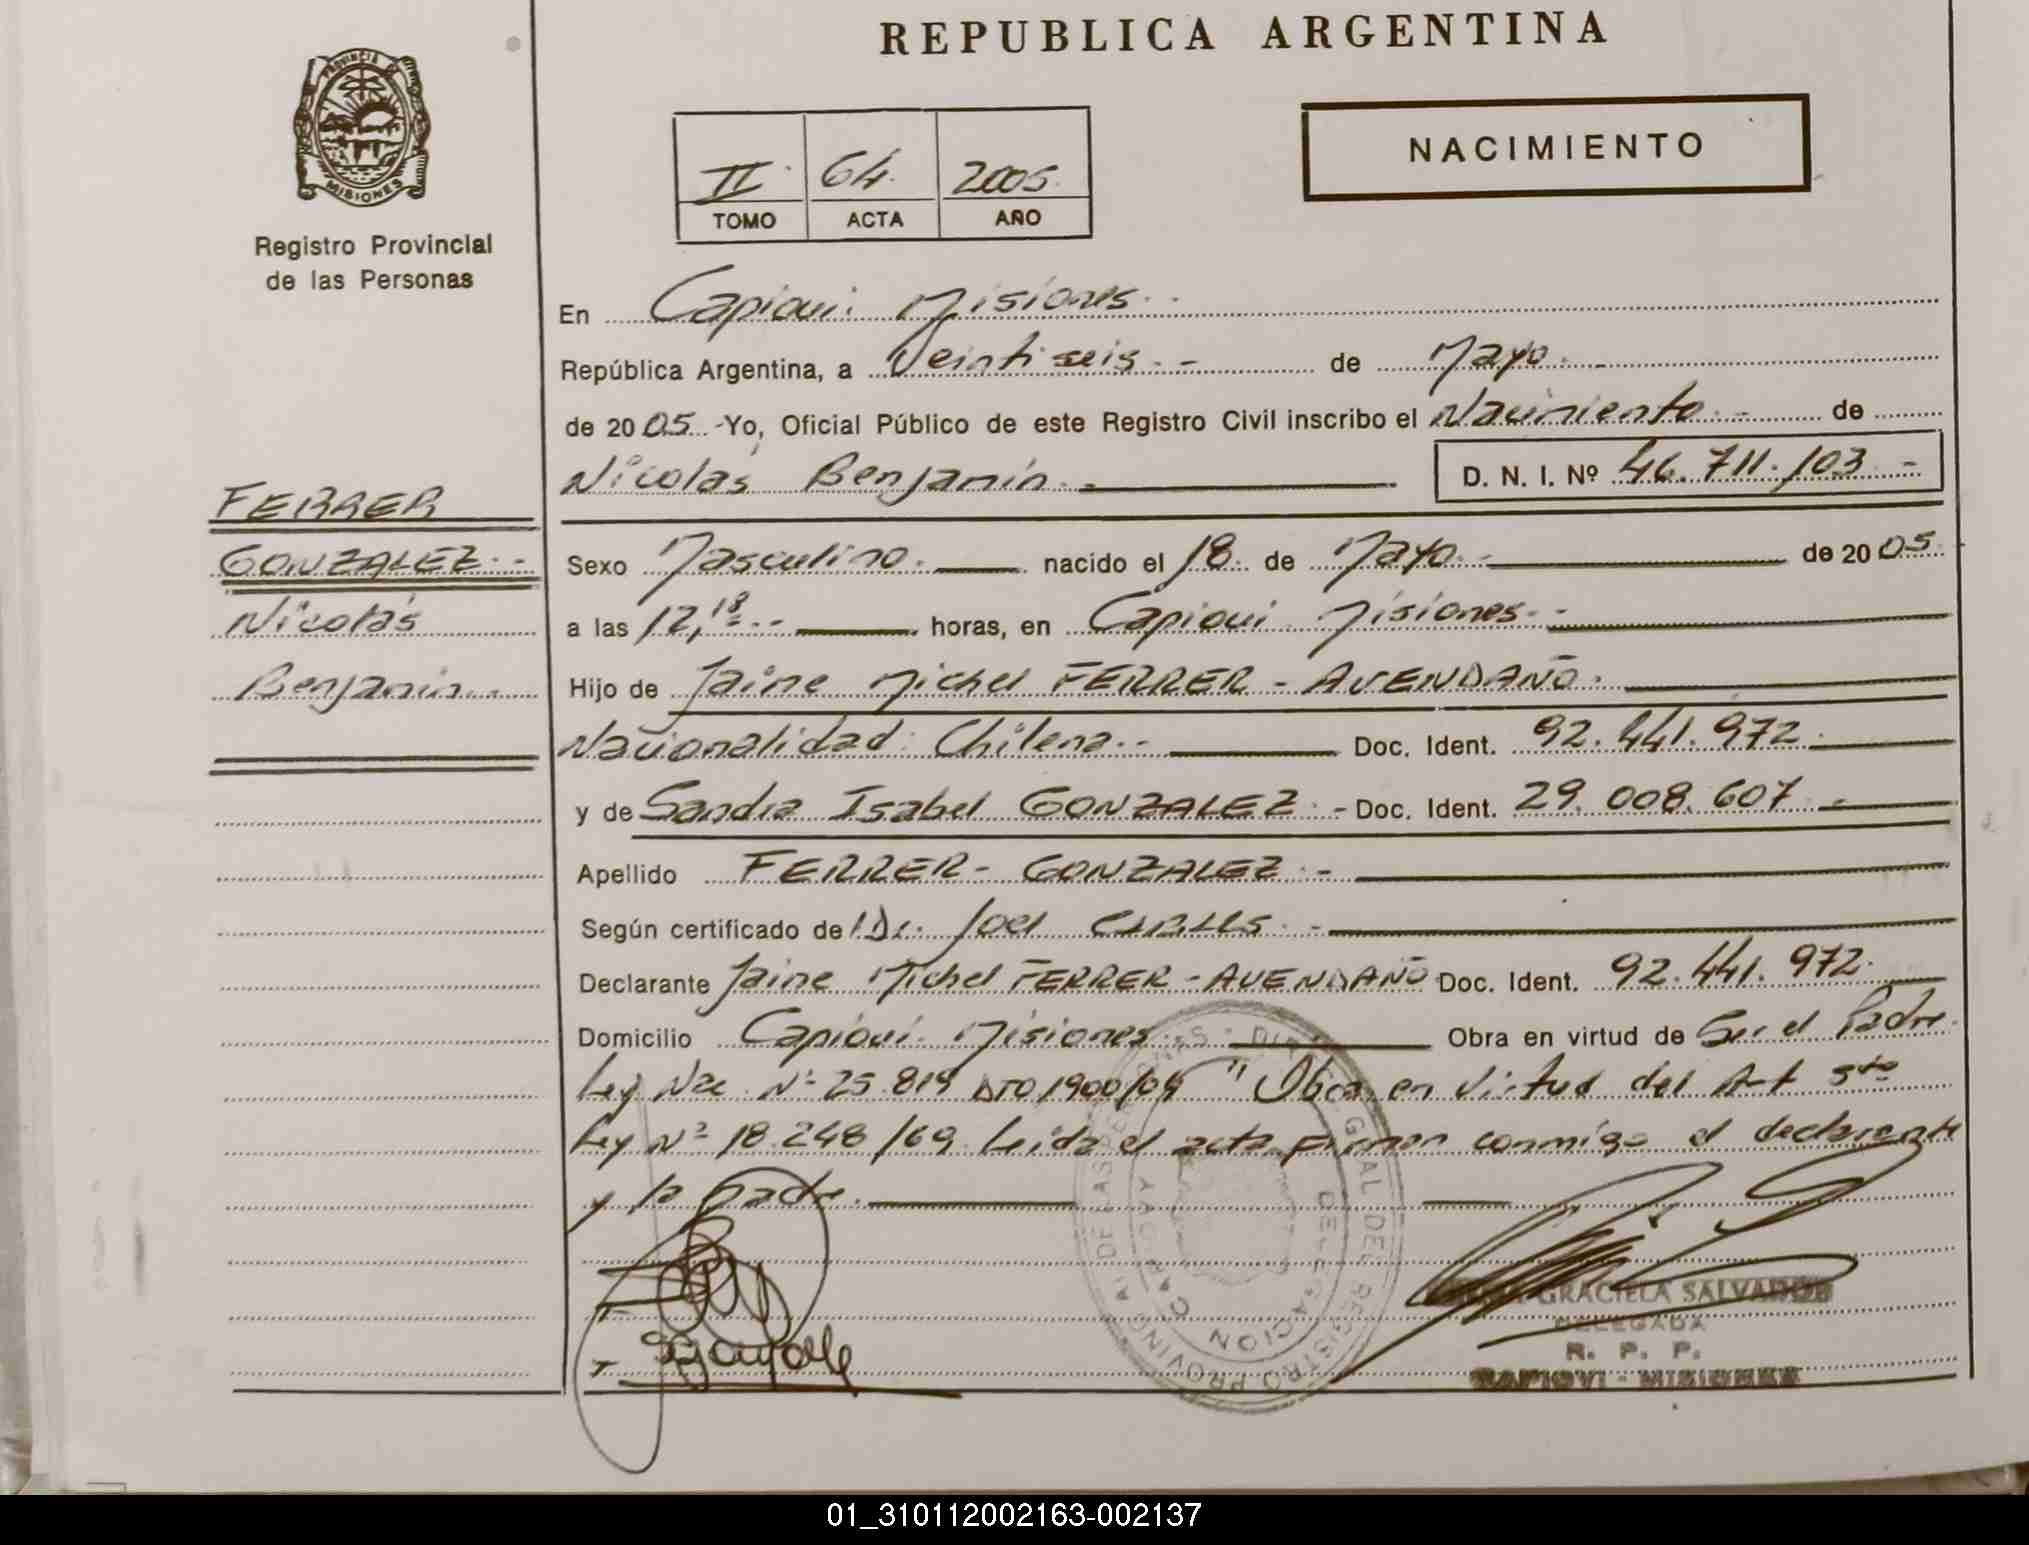 REPUBLICA ARGENTINA
PROVINCIA DE
MISIONES
Registro Provincial
de las Personas
NACIMIENTO
II 64 2005
TOMO ACTA AÑO
En Capiovi Misiones
República Argentina, a Veintiseis de Mayo
de 2005 -Yo, Oficial Público de este Registro Civil inscribo el Nacimiento de
Nicolás Benjamín D. N. I. Nº 46.711.103
FERRER
GONZALEZ
Nicolás
Benjamín
Sexo Masculino nacido el 18 de Mayo de 2005
a las 12,18 horas, en Capiovi Misiones
Hijo de Jaime Michel FERRER - AVENDAÑO
Nacionalidad Chilena Doc. Ident. 92.441.972
y de Sandra Isabel GONZALEZ Doc. Ident. 29.008.607
Apellido FERRER - GONZALEZ
Según certificado de Dr. Joel
Declarante Jaime Michel FERRER - AVENDAÑO Doc. Ident. 92.441.972
Domicilio Capiovi Misiones Obra en virtud de Ser el Padre
Ley Nac Nº 25.819 DTO 1900/04 "Obra en Virtud del Art 5to
Ley Nº 18.248/69. Leida el acta firman conmigo el declarante
y la Madre.
GRACIELA SALVADOR
DELEGADA
R. P. P.
CAPIOVI - MISIONES
DELEGACION CAPIOVY
01_310112002163-002137